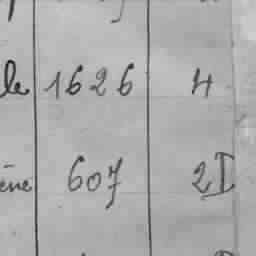 le 1626 4
ène 607 2I